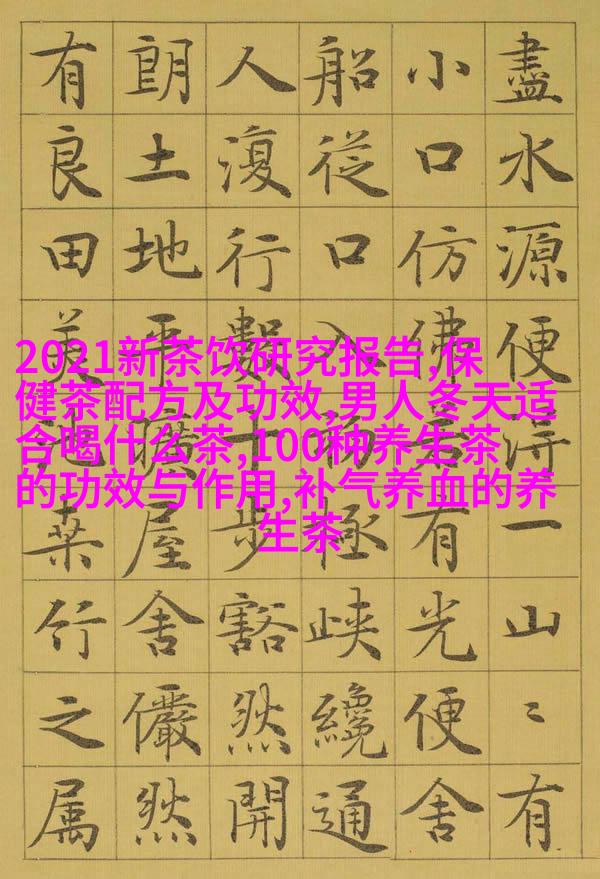 盡水源便浔一山〻有
小口仿佛若有光便舍
船從口入初極峽纔通
人復行數十步豁然開
朗土地平曠屋舍儼然
有良田美池桒竹之属
2021新茶饮研究报告,保
健茶配方及功效,男人冬天适
合喝什么茶,100种养生茶
的功效与作用,补气养血的养
生茶